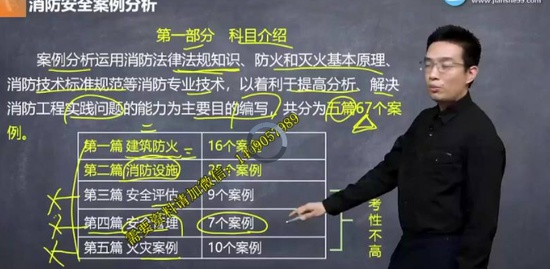 消防安全案例分析
www.jianshe99.com
第一部分 科目介绍
案例分析运用消防法律法规知识、防火和灭火基本原理、
消防技术标准规范等消防专业技术，以着利于提高分析、解决
消防工程实践问题的能力为主要目的编写，共分为五篇67个案
例。
第一篇 建筑防火 16个案例
第二篇 消防设施 25个案例
第三篇 安全评估 9个案例
第四篇 安全管理 7个案例
第五篇 火灾案例 10个案例
考性不高